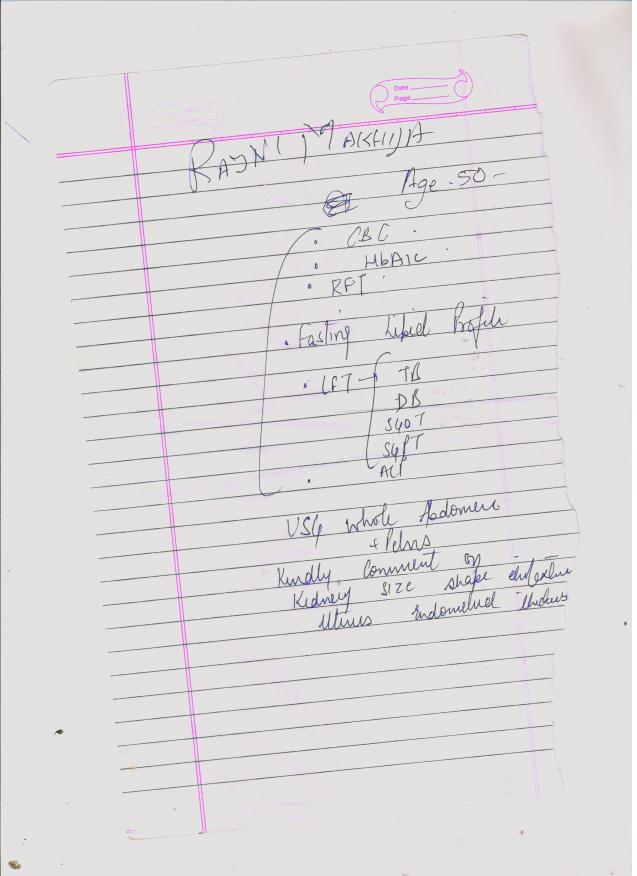 Date
Page
RAJNI MAKHIJA
Age - 50 -
• CBC
• HbA1c
• RFT
• Fasting Lipid Profile
• LFT → TB
DB
SGOT
SGPT
ALP
USG whole Abdomen
+ Pelvis
Kindly Comment on
Kidney size shape
Uterus Endometrial